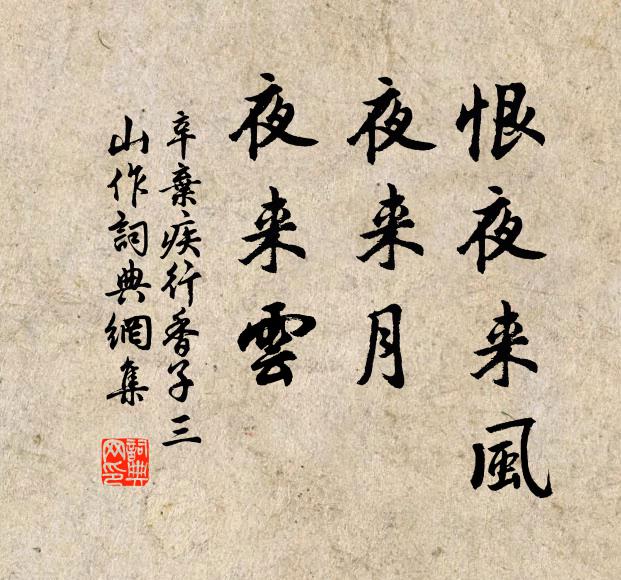 恨夜来風
夜来月
夜来雲
辛棄疾行香子三
山作詞典網集
詞典
网印